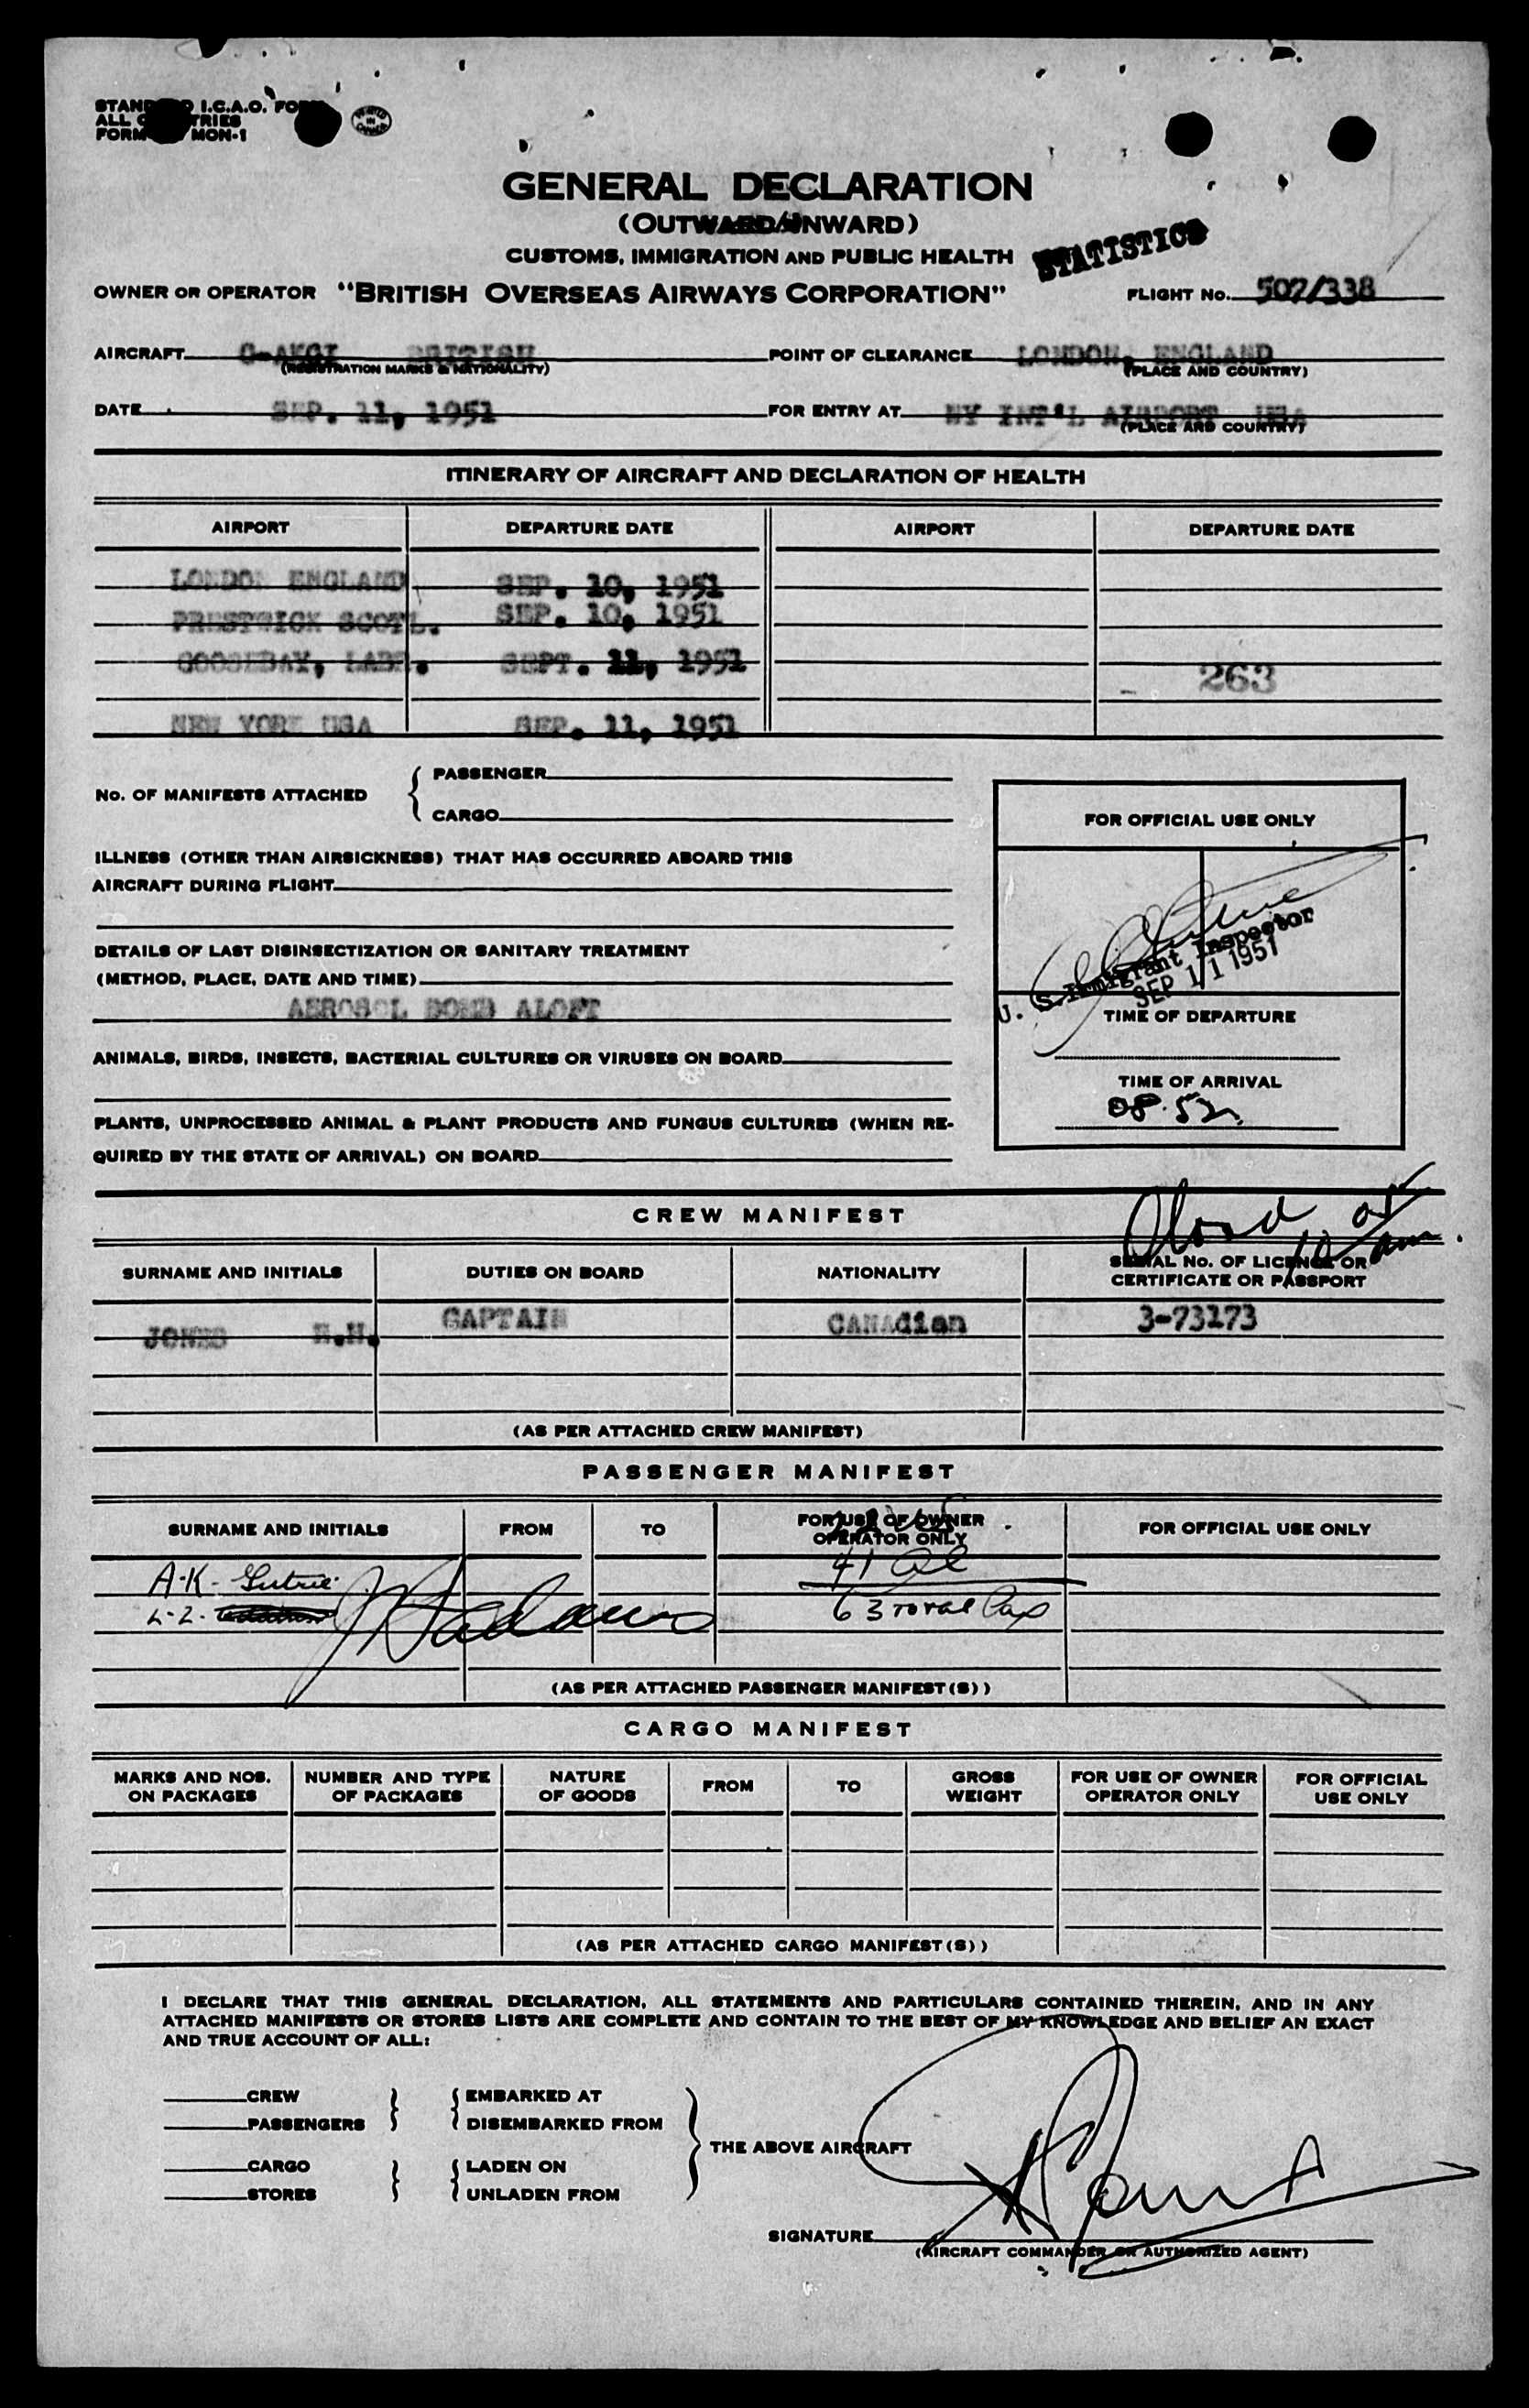 STANDARD I.C.A.O. FORM
ALL COUNTRIES
FORM MON-1
PRINTED IN CANADA
GENERAL DECLARATION
(OUTWARD/INWARD)
CUSTOMS, IMMIGRATION AND PUBLIC HEALTH
STATISTICS
OWNER OR OPERATOR "BRITISH OVERSEAS AIRWAYS CORPORATION" FLIGHT No. 502/338
AIRCRAFT G-AKGI BRITISH POINT OF CLEARANCE LONDON, ENGLAND
(REGISTRATION MARKS & NATIONALITY) (PLACE AND COUNTRY)
DATE SEP. 11, 1951 FOR ENTRY AT NY INT'L AIRPORT USA
(PLACE AND COUNTRY)
ITINERARY OF AIRCRAFT AND DECLARATION OF HEALTH
AIRPORT DEPARTURE DATE AIRPORT DEPARTURE DATE
LONDON ENGLAND SEP. 10, 1951
PRESTWICK SCOTL. SEP. 10, 1951
GOOSEBAY, LABR. SEPT. 11, 1951 263
NEW YORK USA SEP. 11, 1951
No. OF MANIFESTS ATTACHED { PASSENGER
CARGO
FOR OFFICIAL USE ONLY
ILLNESS (OTHER THAN AIRSICKNESS) THAT HAS OCCURRED ABOARD THIS
AIRCRAFT DURING FLIGHT
DETAILS OF LAST DISINSECTIZATION OR SANITARY TREATMENT
(METHOD, PLACE, DATE AND TIME)
AEROSOL BOMB ALOFT
U. S. Immigrant Inspector
SEP 11 1951
TIME OF DEPARTURE
ANIMALS, BIRDS, INSECTS, BACTERIAL CULTURES OR VIRUSES ON BOARD
TIME OF ARRIVAL
08.52
PLANTS, UNPROCESSED ANIMAL & PLANT PRODUCTS AND FUNGUS CULTURES (WHEN RE-
QUIRED BY THE STATE OF ARRIVAL) ON BOARD
CREW MANIFEST
at
10 am.
SURNAME AND INITIALS DUTIES ON BOARD NATIONALITY SERIAL No. OF LICENCE OR
CERTIFICATE OR PASSPORT
JONES CAPTAIN CANADian 3-73173
(AS PER ATTACHED CREW MANIFEST)
PASSENGER MANIFEST
SURNAME AND INITIALS FROM TO FOR USE OF OWNER
OPERATOR ONLY FOR OFFICIAL USE ONLY
A.K. 41 al
L.Z. 63 Total Pax
(AS PER ATTACHED PASSENGER MANIFEST(S))
CARGO MANIFEST
MARKS AND NOS.
ON PACKAGES NUMBER AND TYPE
OF PACKAGES NATURE
OF GOODS FROM TO GROSS
WEIGHT FOR USE OF OWNER
OPERATOR ONLY FOR OFFICIAL
USE ONLY
(AS PER ATTACHED CARGO MANIFEST(S))
I DECLARE THAT THIS GENERAL DECLARATION, ALL STATEMENTS AND PARTICULARS CONTAINED THEREIN, AND IN ANY
ATTACHED MANIFESTS OR STORES LISTS ARE COMPLETE AND CONTAIN TO THE BEST OF MY KNOWLEDGE AND BELIEF AN EXACT
AND TRUE ACCOUNT OF ALL:
CREW } { EMBARKED AT
PASSENGERS DISEMBARKED FROM
THE ABOVE AIRCRAFT
CARGO } { LADEN ON
STORES UNLADEN FROM
SIGNATURE
(AIRCRAFT COMMANDER OR AUTHORIZED AGENT)